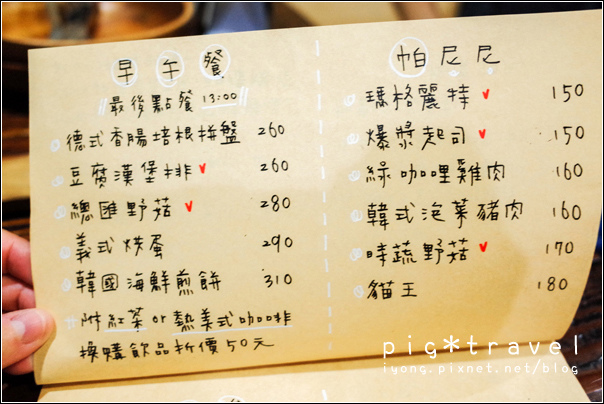 早午餐
最後點餐 13:00
德式香腸培根拼盤 260
豆腐漢堡排 260
總匯野菇 280
義式烘蛋 290
韓國海鮮煎餅 310
附紅茶 or 熱美式咖啡
換購飲品折價50元
帕尼尼
瑪格麗特 150
爆漿起司 150
綠咖哩雞肉 160
韓式泡菜豬肉 160
時蔬野菇 170
貓王 180
pig*travel
iyong.pixnet.net/blog